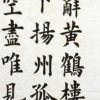 辭黃鶴樓
下揚州孤
空盡唯見